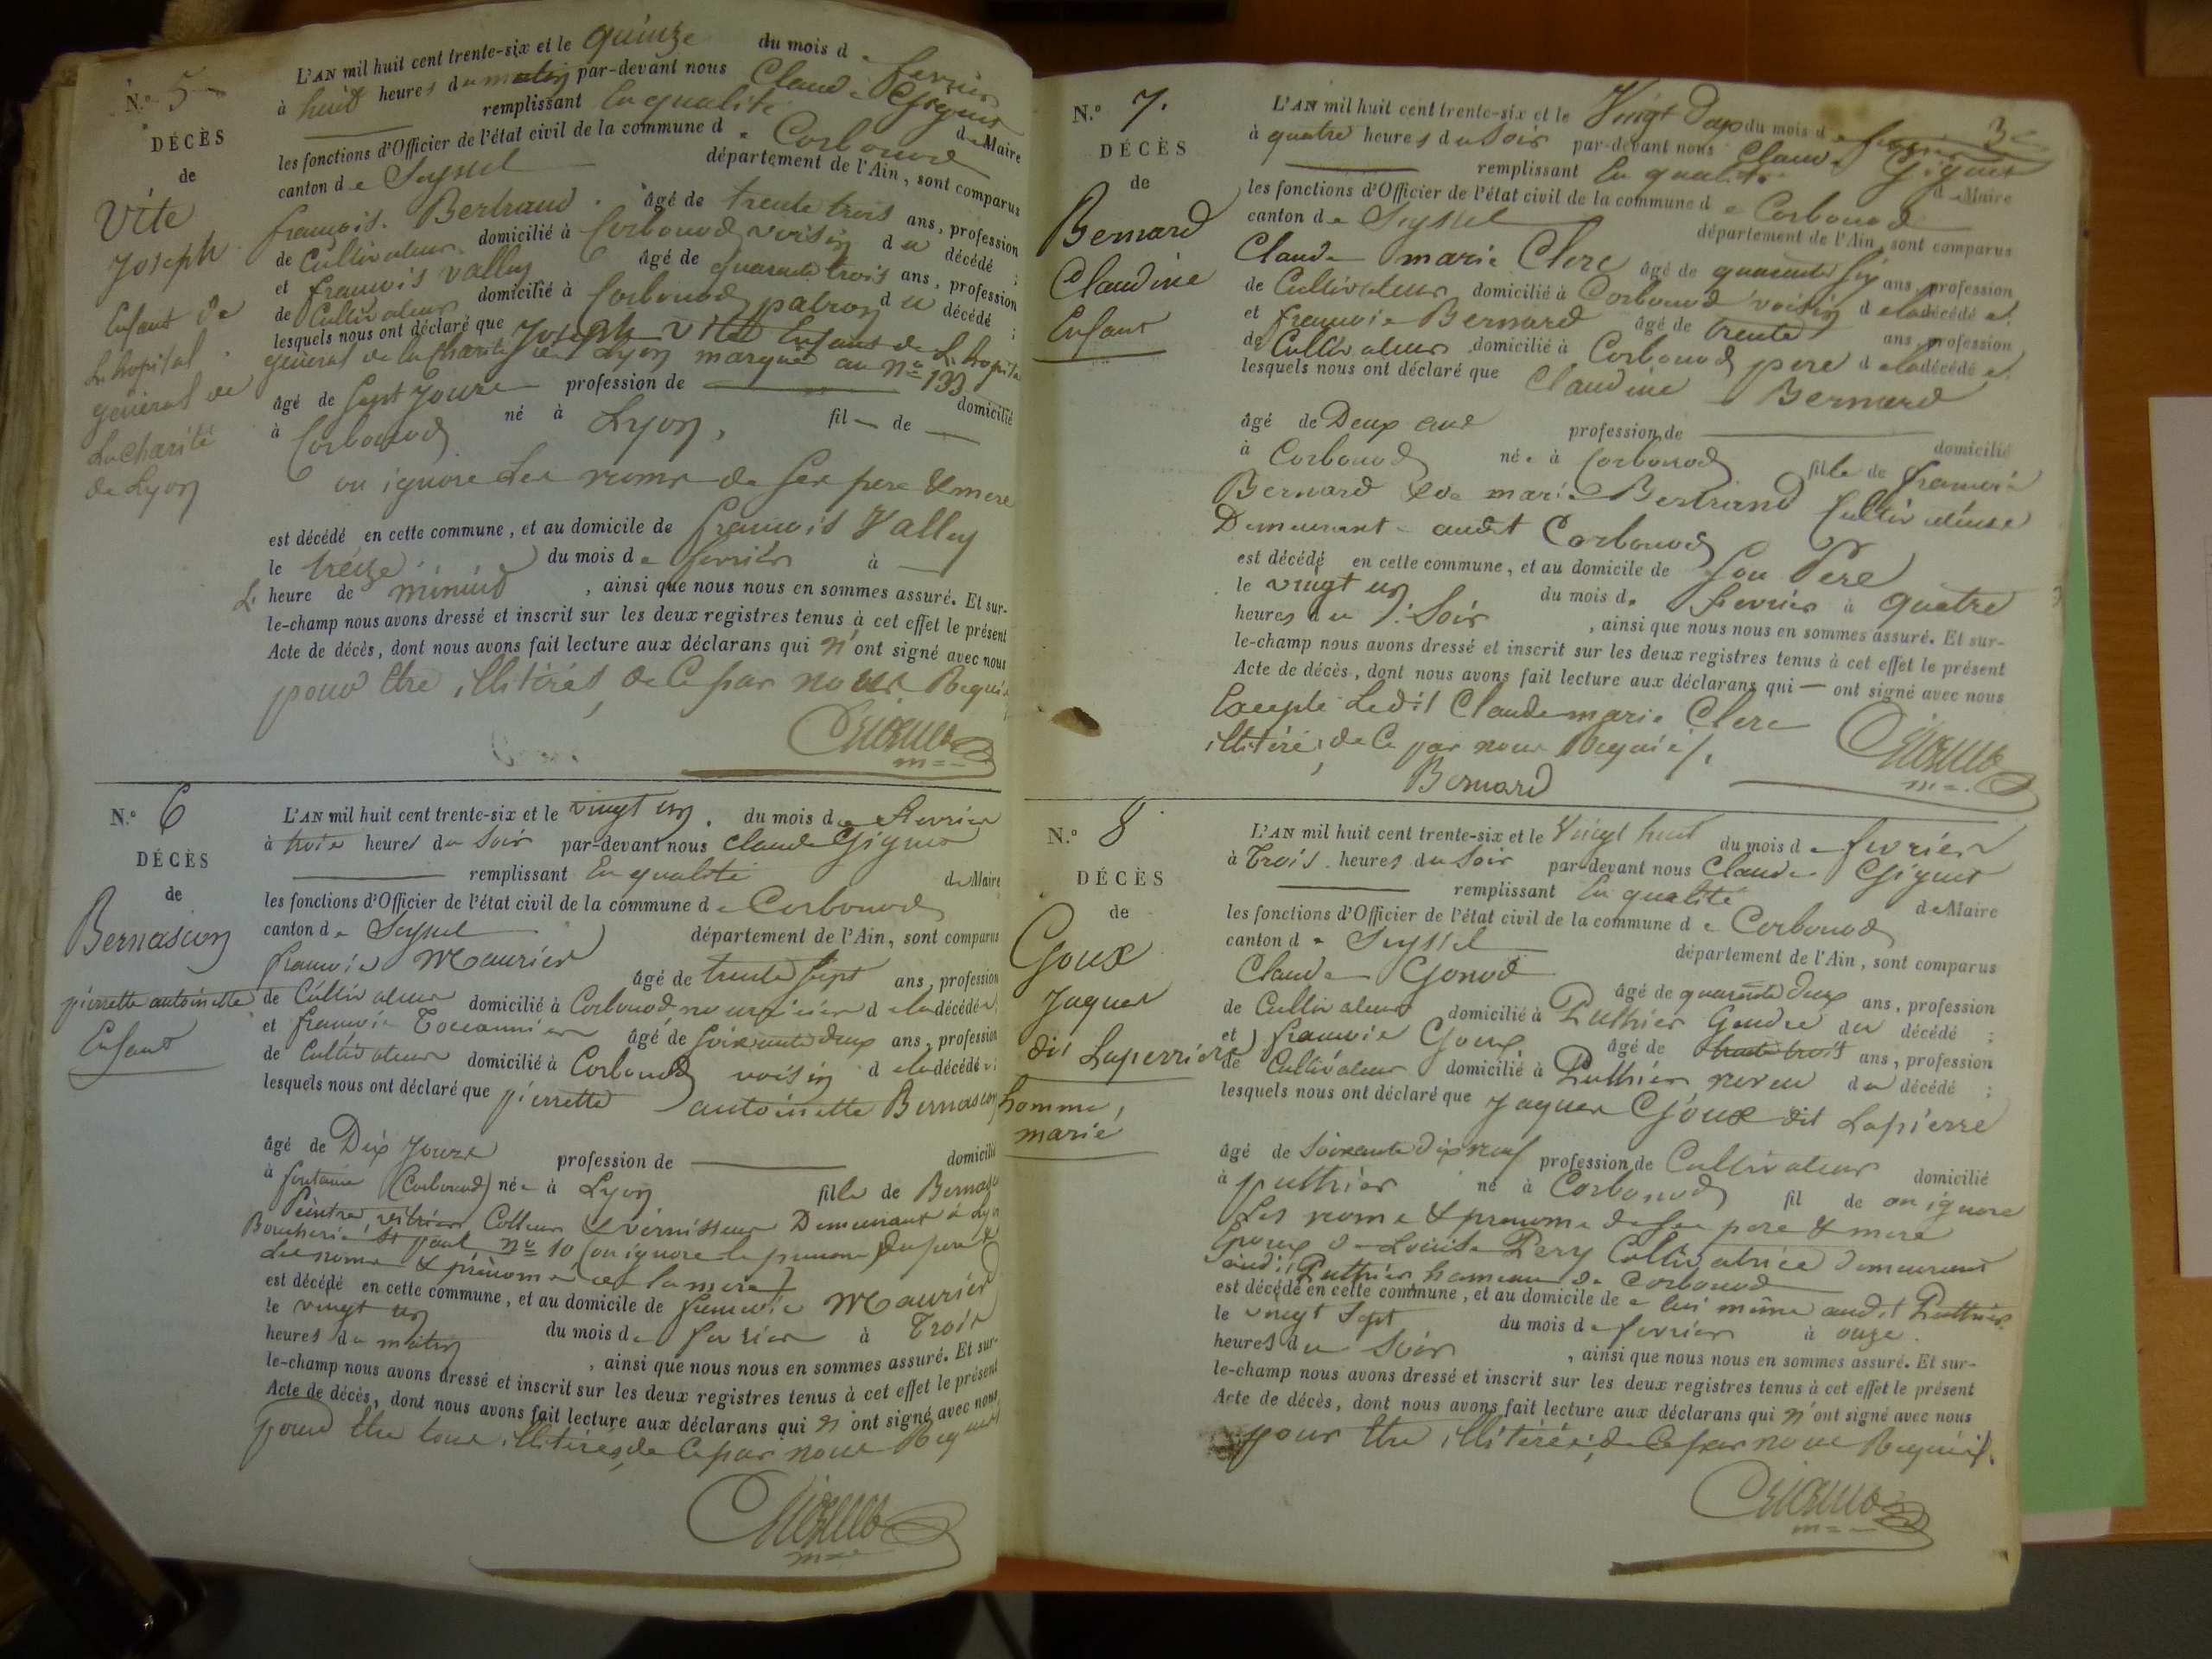 N.° 5
DÉCÈS
de
Vite
Joseph
Enfant de
L'hopital
général de
La Charité
de Lyon
L'AN mil huit cent trente-six et le quinze du mois de fevrier
à huit heures du matin par-devant nous Claude Gignet
remplissant En qualité de Maire
les fonctions d'Officier de l'état civil de la commune de Corbonod
canton de Seyssel département de l'Ain, sont comparus
françois Bertrand âgé de trente trois ans, profession
de Cultivateur domicilié à Corbonod voisin du décédé ;
et françois Valley âgé de quarante trois ans, profession
de Cultivateur domicilié à Corbonod patron du décédé ;
lesquels nous ont déclaré que Joseph Vite Enfant de L'hopital
général de la Charité de Lyon marqué au n° 133
âgé de sept Jours profession de domicilié
à Corbonod né à Lyon, fil de
on ignore Les noms de ses pere & mere
est décédé en cette commune, et au domicile de françois Valley
le treize du mois de fevrier à
L' heure de minuit, ainsi que nous nous en sommes assuré. Et sur-
le-champ nous avons dressé et inscrit sur les deux registres tenus à cet effet le présent
Acte de décès, dont nous avons fait lecture aux déclarans qui n'ont signé avec nous
pour être illitérés, de Ce par nous Requis
N.° 6
DÉCÈS
de
Bernascon
pierrette antoinette
Enfant
L'AN mil huit cent trente-six et le vingt un du mois de fevrier
à trois heures du soir par-devant nous Claude Gignet
remplissant En qualité de Maire
les fonctions d'Officier de l'état civil de la commune de Corbonod
canton de Seyssel département de l'Ain, sont comparus
françois Maurier âgé de trente sept ans, profession
de Cultivateur domicilié à Corbonod nourricier de la décédée
et françois âgé de soixante deux ans, profession
de Cultivateur domicilié à Corbonod voisin de la décédée
lesquels nous ont déclaré que pierrette antoinette Bernascon
âgé de Dix Jours profession de domicilié
à fontaine (Corbonod) née à Lyon fille de Bernascon
Peintre, vitrier Colleur & vernisseur Demeurant à Lyon
Boucherie St paul n° 10 (on ignore le prenom du pere &
Les noms & prénoms de la mere)
est décédé en cette commune, et au domicile de françois Maurier
le vingt un du mois de fevrier à Trois
heures du matin, ainsi que nous nous en sommes assuré. Et sur-
le-champ nous avons dressé et inscrit sur les deux registres tenus à cet effet le présent
Acte de décès, dont nous avons fait lecture aux déclarans qui n'ont signé avec nous
pour être tous illitérés, de Ce par nous Requis
N.° 7.
DÉCÈS
de
Bernard
Claudine
Enfant
L'AN mil huit cent trente-six et le Vingt Deux du mois de fevrier
à quatre heures du soir par-devant nous Claude Gignet
remplissant En qualité de Maire
les fonctions d'Officier de l'état civil de la commune de Corbonod
canton de Seyssel département de l'Ain, sont comparus
Claude marie Clerc âgé de quarante six ans, profession
de Cultivateur domicilié à Corbonod voisin de la décédée
et françois Bernard âgé de trente ans, profession
de Cultivateur domicilié à Corbonod pere de la décédée
lesquels nous ont déclaré que Claudine Bernard
âgé de Deux ans profession de domicilié
à Corbonod née à Corbonod fille de françois
Bernard & de marie Bertrand Cultivateurs
Demeurant audit Corbonod
est décédé en cette commune, et au domicile de Son Pere
le vingt un du mois de fevrier à quatre
heures du Soir, ainsi que nous nous en sommes assuré. Et sur-
le-champ nous avons dressé et inscrit sur les deux registres tenus à cet effet le présent
Acte de décès, dont nous avons fait lecture aux déclarans qui — ont signé avec nous
Excepté Ledit Claude marie Clerc
illitéré, de Ce par nous Requis.
Bernard
N.° 8
DÉCÈS
de
Goux
Jaques
dit Laperriere
homme
marié
L'AN mil huit cent trente-six et le Vingt huit du mois de fevrier
à Trois heures du Soir par-devant nous Claude Gignet
remplissant En qualité de Maire
les fonctions d'Officier de l'état civil de la commune de Corbonod
canton de Seyssel département de l'Ain, sont comparus
Claude Gonod âgé de quarante deux ans, profession
de Cultivateur domicilié à Puthier Gendre du décédé ;
et françois Goux âgé de trente trois ans, profession
de Cultivateur domicilié à Puthier neveu du décédé ;
lesquels nous ont déclaré que Jaques Goux dit Lapierre
âgé de soixante dix neuf profession de Cultivateur domicilié
à puthier né à Corbonod fil de on ignore
Les noms & prenoms de ses pere & mere
Epoux de Louise Pery Cultivatrice demeurant
audit Puthier hameau de Corbonod
est décédé en cette commune, et au domicile de lui même audit Puthier
le vingt sept du mois de fevrier à onze
heures du Soir, ainsi que nous nous en sommes assuré. Et sur-
le-champ nous avons dressé et inscrit sur les deux registres tenus à cet effet le présent
Acte de décès, dont nous avons fait lecture aux déclarans qui n'ont signé avec nous
pour être illitérés, de Ce par nous Requis.